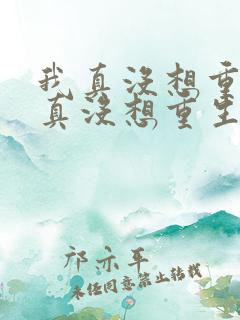 我真没想重
真没想重生
祁亦平
未经同意禁止转载